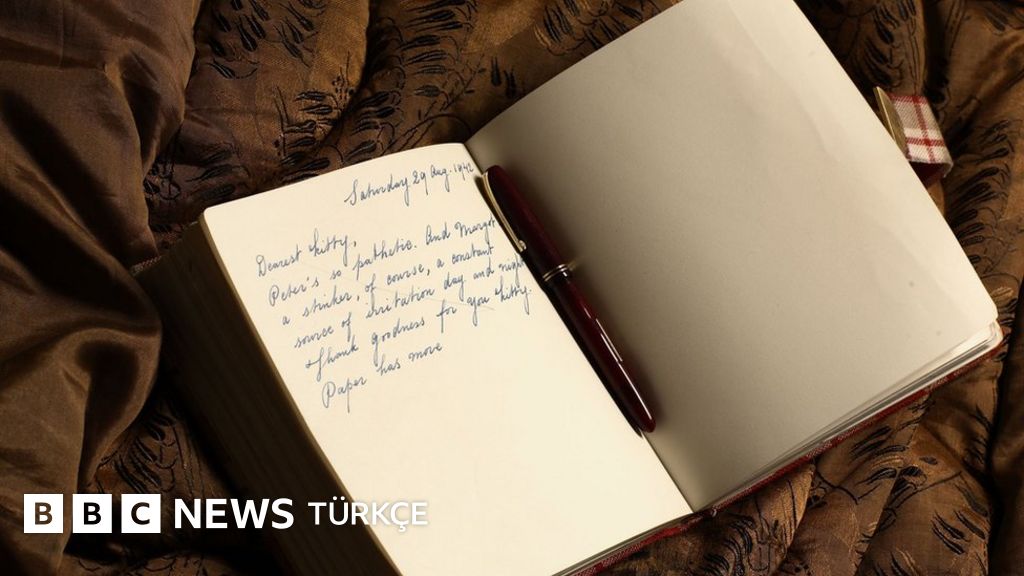 Saturday 29 Aug. 1942
Dearest Kitty,
Peter's so pathetic. And Margot
a stinker, of course, a constant
source of irritation day and night
thank goodness for you Kitty.
Paper has more
BBC NEWS TÜRKÇE